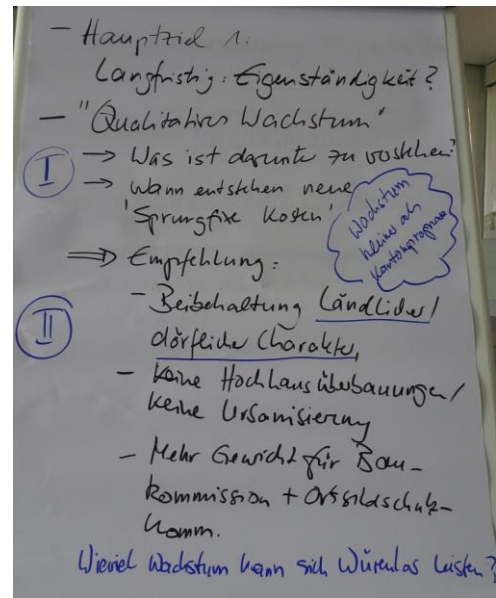 - Hauptziel 1:
Langfristig: Eigenständigkeit?
- "Qualitatives Wachstum"
I → Was ist darunter zu verstehen?
→ Wann entstehen neue
'Sprungfixe Kosten'
Wachstum
kleiner als
Kantonsprognose
⇒ Empfehlung:
- Beibehaltung Ländlicher/
II dörflicher Charakter,
- Keine Hochhausüberbauungen/
Keine Urbanisierung
- Mehr Gewicht für Bau-
kommission + Ortsbildschutz-
komm.
Wieviel Wachstum kann sich Würenlos leisten?